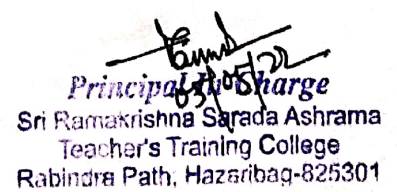 03/05/22
Principal In Charge
Sri Ramakrishna Sarada Ashrama
Teacher's Training College
Rabindra Path, Hazaribag-825301